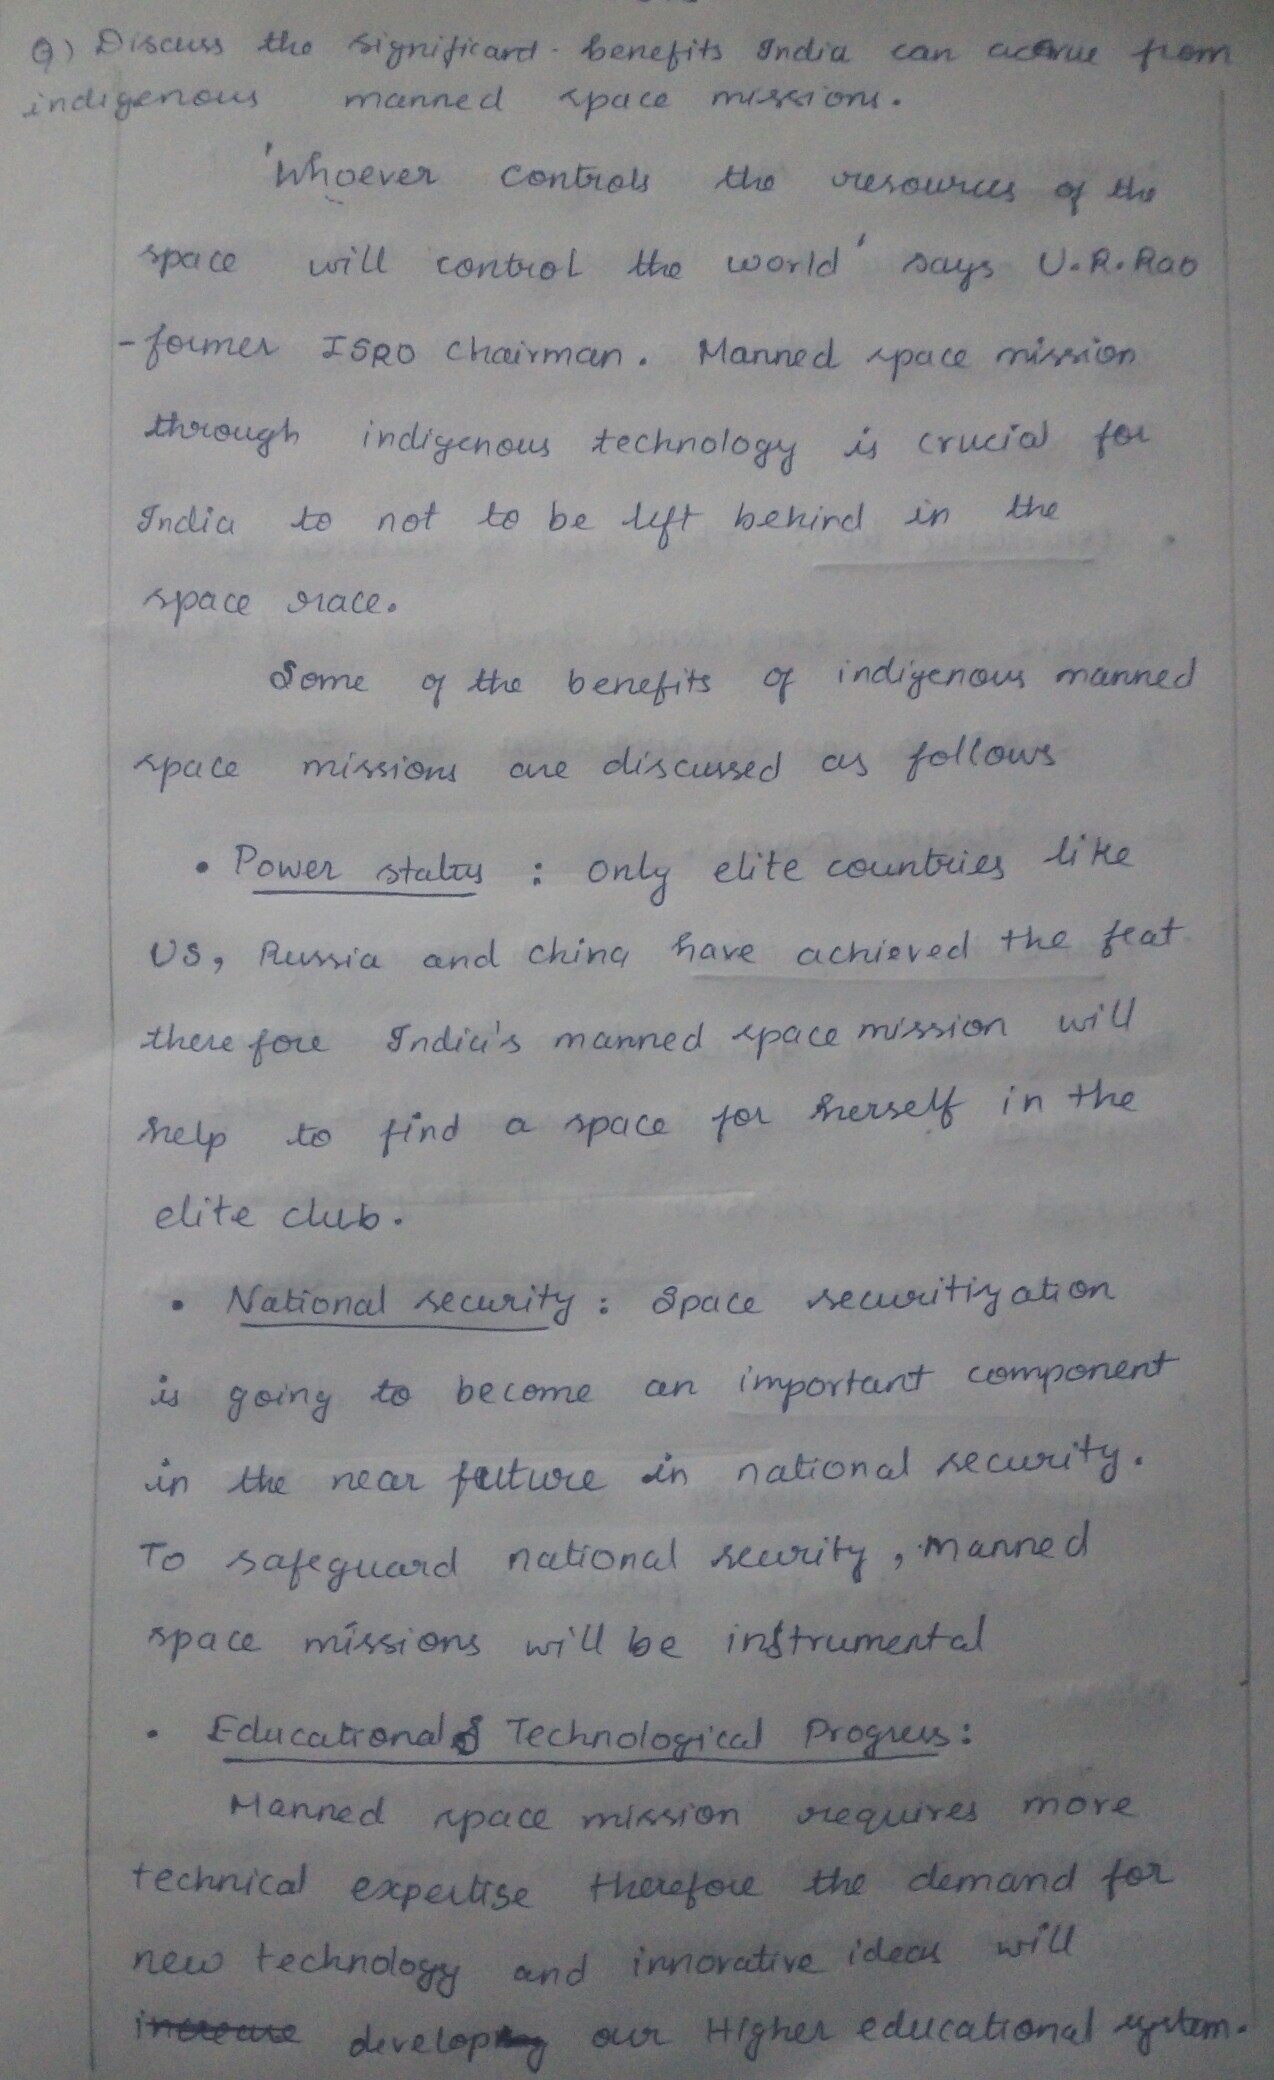 Q) Discuss the significant benefits India can accrue from
indigenous manned space missions.
'Whoever controls the resources of the
space will control the world' says U.R.Rao
- former ISRO chairman. Manned space mission
through indigenous technology is crucial for
India to not to be left behind in the
space race.
Some of the benefits of indigenous manned
space missions are discussed as follows
• Power status : only elite countries like
US, Russia and china have achieved the feat
therefore India's manned space mission will
help to find a space for herself in the
elite club.
• National security : Space securitization
is going to become an important component
in the near future in national security.
To safeguard national security, manned
space missions will be instrumental
• Educational & Technological Progress:
Manned space mission requires more
technical expertise therefore the demand for
new technology and innovative ideas will
increase develop our Higher educational system.